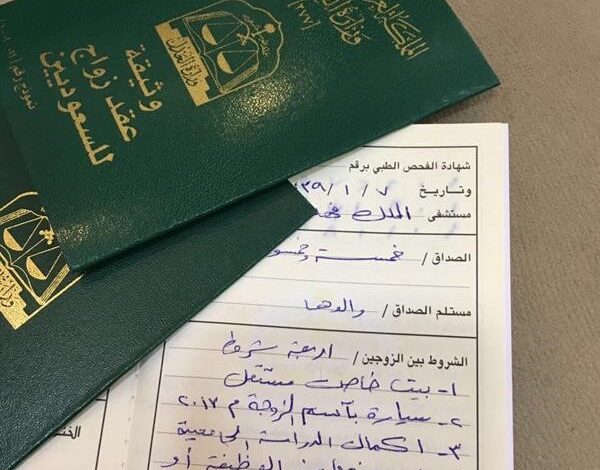 المملكة
وزارة العدل
[٢٧٧]
وزارة العدل
وثيقة
عقد زواج
للسعوديين
نموذج رقم
شهادة الفحص الطبي برقم
وتاريخ ٧ / ١ / ٣٩
مستشفى الملك
الصداق / خمسة
مستلم الصداق / والدها
الشروط بين الزوجين / اربعة شروط
١- بيت خاص مستقل
٢- سيارة بأسم الزوجة م ٢٠١٣
٣- اكمال الدراسة الجامعية
الوظيفة أو